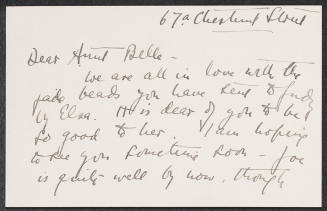 67a Chestnut Street
Dear Aunt Belle -
We are all in love with the
jade beads you have sent to Judy
by Elsa. It is dear of you to be
so good to her. I am hoping
to see you sometime soon - Joe
is quite well by now, though